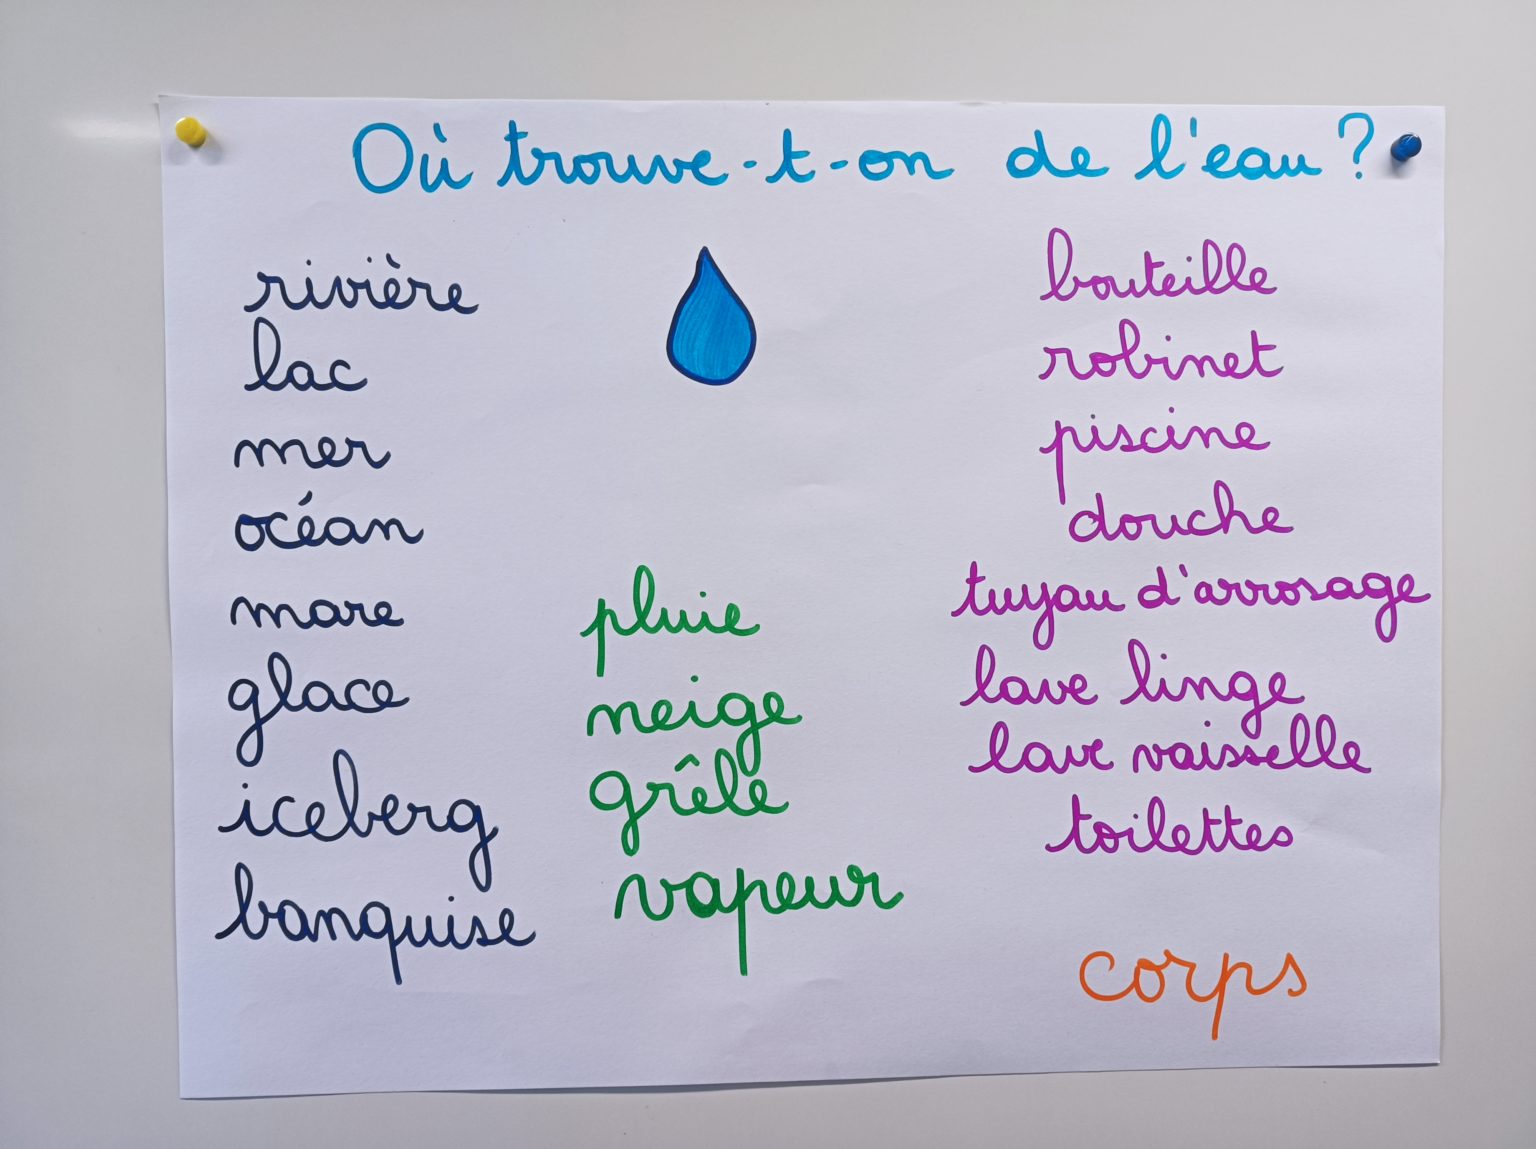 Où trouve-t-on de l'eau ?
rivière
lac
mer
océan
mare
glace
iceberg
banquise
pluie
neige
grêle
vapeur
bouteille
robinet
piscine
douche
tuyau d'arrosage
lave linge
lave vaisselle
toilettes
corps